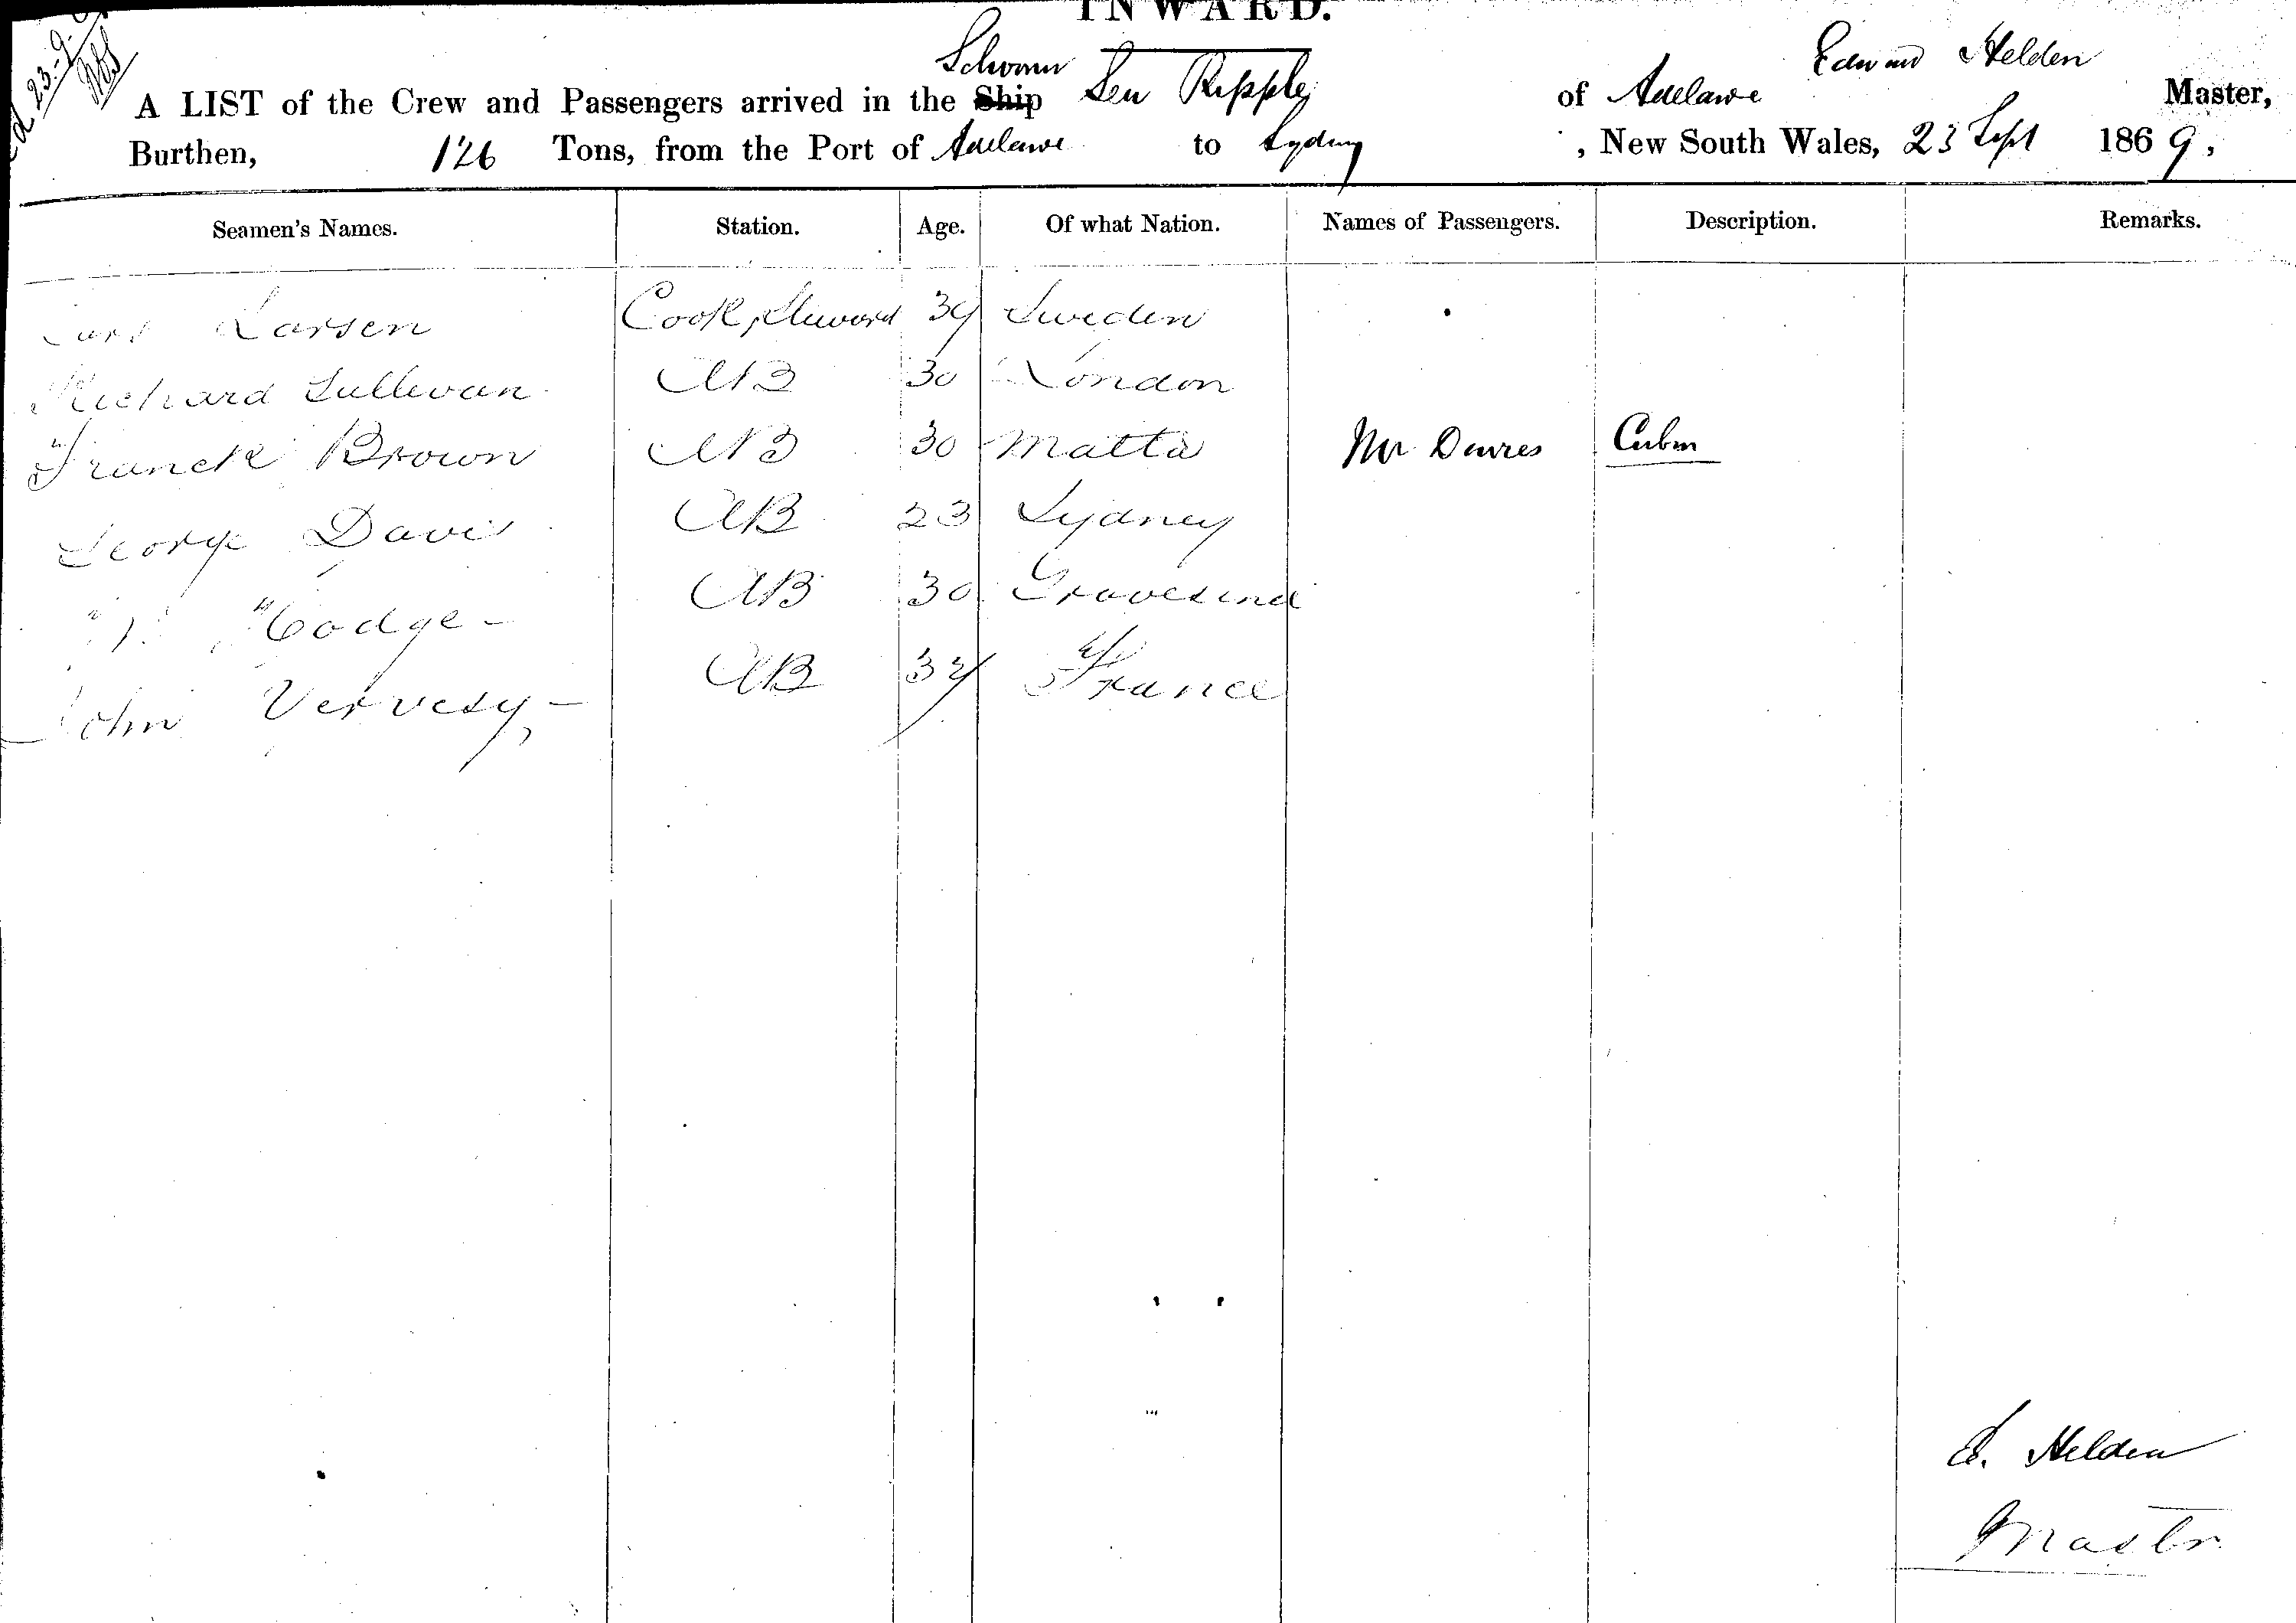 INWARD.
Schooner
Edward Helden
A LIST of the Crew and Passengers arrived in the Ship Sea Ripple of Adelaide Master,
Burthen, 126 Tons, from the Port of Adelaide to Sydney, New South Wales, 23 Sept 1869,
Seamen's Names. Station. Age. Of what Nation. Names of Passengers. Description. Remarks.
Larsen Cook, Steward Sweden
Richard Sullevan AB 30 London
Franck Brown AB 30 Malta Mr Davies Cabin
George Davis AB 23 Sydney
Hodge AB 30 Gravesend
John Vervesy AB France
E. Helden
Master